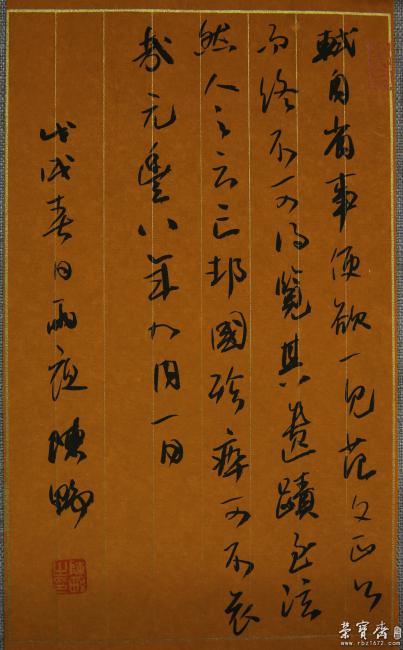 轼自省事便欲一见范文正公
而终不可得览其遗蹟至泫
然人之云亡邦国殄瘁可不哀
哉元豊八年九月一日
戊戌春日雨夜陳野
榮寶齋
www.rbz1672.com